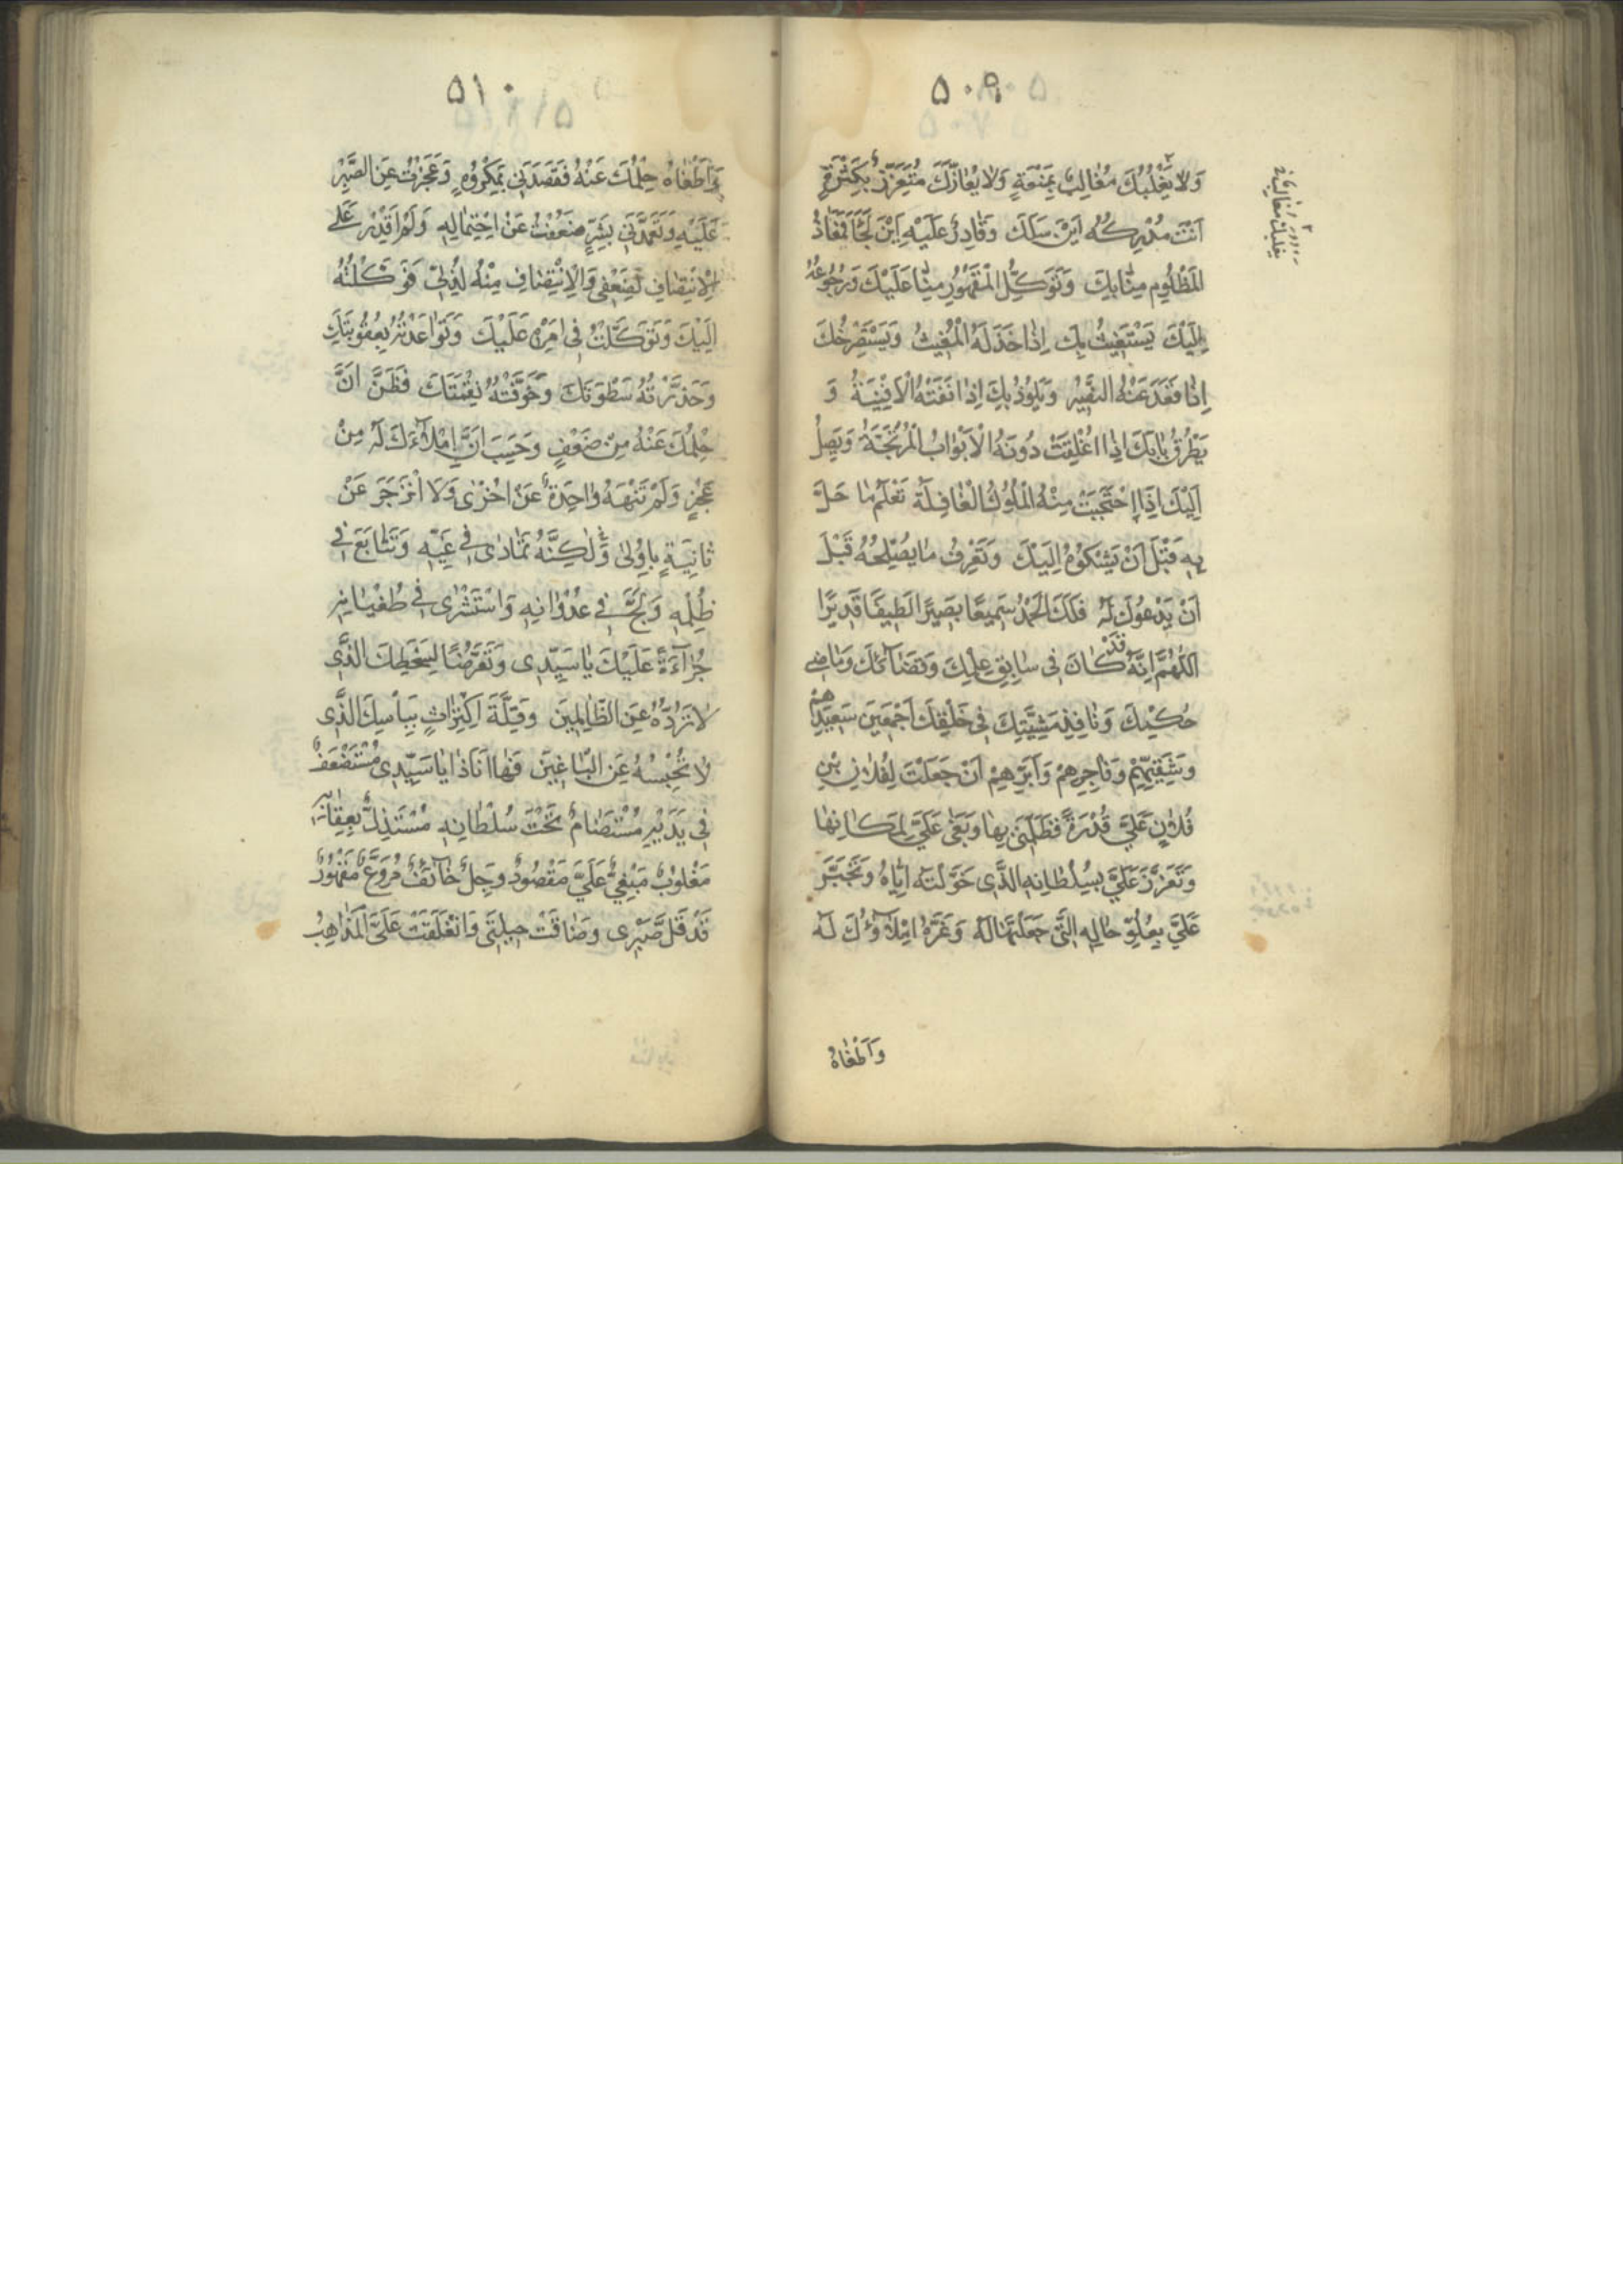 ۵۰۹
وَلَا يَغْلِبُكَ مُغَالِبٌ بِمَنَعَةٍ وَلَا يُعَازُّكَ مُتَعَزِّزٌ بِكَثْرَةٍ
اَنْتَ مُدْرِكُهُ اَيْنَ سَلَكَ وَقَادِرٌ عَلَيْهِ اَيْنَ لَجَأَ فَمَعَاذُ
الْمَظْلُومِ مِنَّا بِكَ وَتَوَكُّلُ الْمَقْهُورِ مِنَّا عَلَيْكَ وَرُجُوعُهُ
اِلَيْكَ يَسْتَغِيثُ بِكَ اِذَا خَذَلَهُ الْمُغِيثُ وَيَسْتَصْرِخُكَ
اِذَا قَعَدَ عَنْهُ النَّصِيرُ وَيَلُوذُ بِكَ اِذَا نَفَتْهُ الْاَفْنِيَةُ وَ
يَطْرُقُ بَابَكَ اِذَا اُغْلِقَتْ دُونَهُ الْاَبْوَابُ الْمُرْتَجَةُ وَيَصِلُ
اِلَيْكَ اِذَا احْتَجَبَتْ مِنْهُ الْمُلُوكُ الْغَافِلَةُ تَعْلَمُ مَا حَلَّ
بِهِ قَبْلَ اَنْ يَشْكُوهُ اِلَيْكَ وَتَعْرِفُ مَا يُصْلِحُهُ قَبْلَ
اَنْ يَدْعُوَكَ لَهُ فَلَكَ الْحَمْدُ سَمِيعًا بَصِيرًا لَطِيفًا قَدِيرًا
اللّٰهُمَّ اِنَّهُ قَدْ كَانَ فِي سَابِقِ عِلْمِكَ وَقَضَائِكَ وَمَاضِي
حُكْمِكَ وَنَافِذِ مَشِيَّتِكَ فِي خَلْقِكَ اَجْمَعِينَ سَعِيدِهِمْ
وَشَقِيِّهِمْ وَفَاجِرِهِمْ وَبَرِّهِمْ اَنْ جَعَلْتَ لِفُلَانِ بْنِ
فُلَانٍ عَلَيَّ قُدْرَةً فَظَلَمَنِي بِهَا وَبَغَى عَلَيَّ لِمَكَانِهَا
وَتَعَزَّزَ عَلَيَّ بِسُلْطَانِهِ الَّذِي خَوَّلْتَهُ اِيَّاهُ وَتَجَبَّرَ
عَلَيَّ بِعُلُوِّ حَالِهِ الَّتِي جَعَلْتَهَا لَهُ وَغَرَّهُ اِمْلَاؤُكَ لَهُ
وَاَطْغَاهُ
۵۱۰
وَاَطْغَاهُ حِلْمُكَ عَنْهُ فَقَصَدَنِي بِمَكْرُوهٍ وَعَجَزْتُ عَنِ الصَّبْرِ
عَلَيْهِ وَتَعَمَّدَنِي بِشَرٍّ ضَعُفْتُ عَنْ احْتِمَالِهِ وَلَمْ اَقْدِرْ عَلَى
الْاِنْتِصَافِ لِضَعْفِي وَالْاِنْتِصَافِ مِنْهُ لِذُلِّي فَوَكَلْتُهُ
اِلَيْكَ وَتَوَكَّلْتُ فِي اَمْرِهِ عَلَيْكَ وَتَوَاعَدْتُهُ بِعُقُوبَتِكَ
وَحَذَّرْتُهُ سَطْوَتَكَ وَخَوَّفْتُهُ نِقْمَتَكَ فَظَنَّ اَنَّ
حِلْمَكَ عَنْهُ مِنْ ضَعْفٍ وَحَسِبَ اَنَّ اِمْلَاءَكَ لَهُ مِنْ
عَجْزٍ وَلَمْ تَنْهَهُ وَاحِدَةٌ عَنْ اُخْرَى وَلَا انْزَجَرَ عَنْ
ثَانِيَةٍ بِاُولَى وَلٰكِنَّهُ تَمَادَى فِي غَيِّهِ وَتَتَابَعَ فِي
ظُلْمِهِ وَلَجَّ فِي عُدْوَانِهِ وَاسْتَشْرَى فِي طُغْيَانِهِ
جُرْاَةً عَلَيْكَ يَا سَيِّدِي وَتَعَرُّضًا لِسَخَطِكَ الَّذِي
لَا تَرُدُّهُ عَنِ الظَّالِمِينَ وَقِلَّةَ اكْتِرَاثٍ بِبَأْسِكَ الَّذِي
لَا تَحْبِسُهُ عَنِ الْبَاغِينَ فَهَا اَنَا ذَا يَا سَيِّدِي مُسْتَضْعَفٌ
فِي يَدَيْهِ مُسْتَضَامٌ تَحْتَ سُلْطَانِهِ مُسْتَذَلٌّ بِعِقَابِهِ
مَغْلُوبٌ مَبْغِيٌّ عَلَيَّ مَقْصُودٌ وَجِلٌ خَائِفٌ مُرَوَّعٌ مَقْهُورٌ
قَدْ قَلَّ صَبْرِي وَضَاقَتْ حِيلَتِي وَانْغَلَقَتْ عَلَيَّ الْمَذَاهِبُ